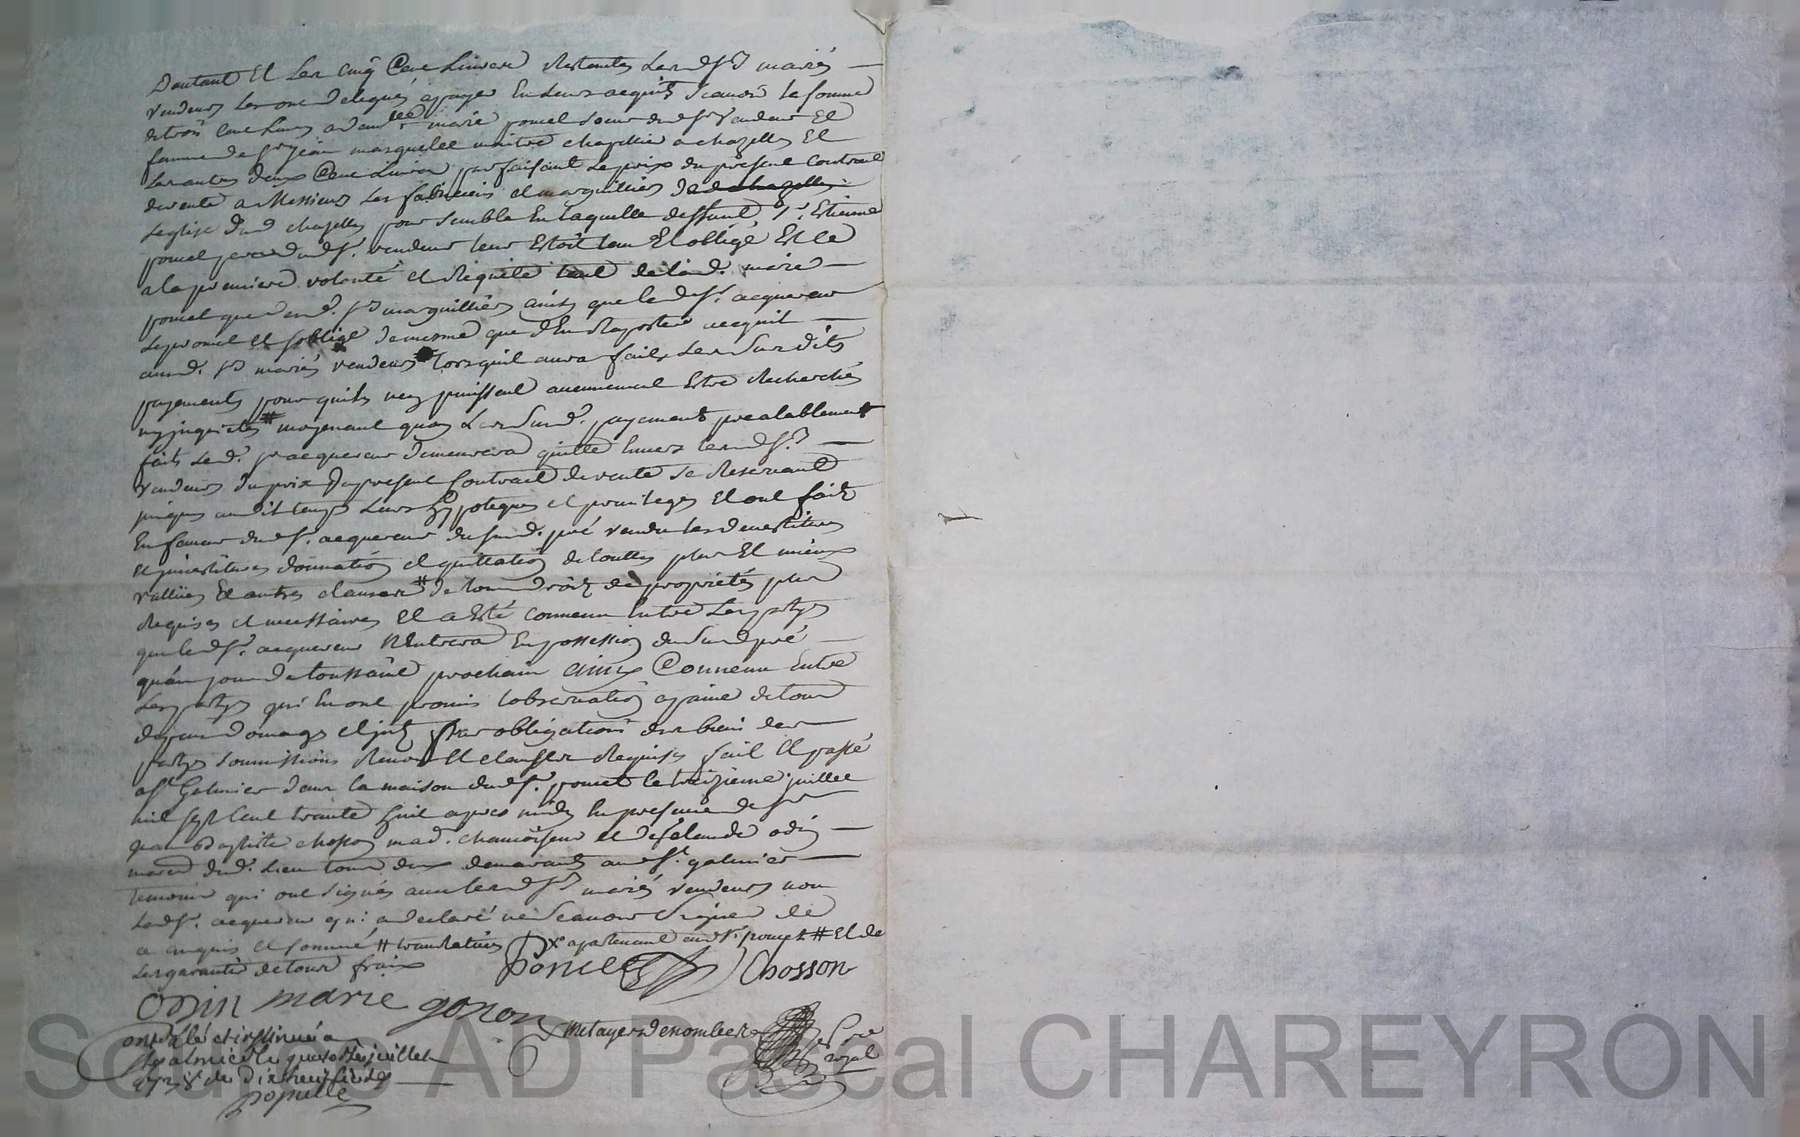 Dautant Et Les cinq Cent Livres Restantes Les dsd mariés
vendeurs Les ont delegués a payer En Leurs acquits Scavoir la somme
de trois Cent Livres a marie poncet soeur dud sr vendeur Et
femme de sr jean marquellet maitre chapellier a chazelles Et
Les autres deux Cent Livres parfaisant Le prix du present Contract
de vente a Messieurs Les fabriciens et marguilliers de de chazelles
Leglise dud chazelles pour semble En laquelle deffunt sr. Estienne
poncet pere dud sr. vendeur leur Estoit tenu Et obligé Et ce
a la premiere volonté et Requite tant de lad. marie
poncet que desd. srs marguilliers ainsy que led sr. acquereur
Le promet et soblige de mesme que den Raporter acquit
ausd. srs mariés vendeurs lorsquil aura fait Les Susdits
payements pour quils ney puissent aucunement Estre Recherchés
ny inquietés # moyenant quoy Les Susd. payements prealablement
faits Led. sr acquereur demeurera quitte Envers lesd srs
vendeurs du prix du present Contract de vente se Reservant
jusques audit temps Leurs hypoteques et privileges Et ont fait
En faveur dud sr. acquereur du susd. pré vendu les devestitures
et investitures donnation et quittation de touttes plus Et mieux
vallües Et autres clauses # de tous droits de proprietés plus
Requises et necessaires Et a Esté convenu Entre Les partyes
que led sr. acquereur N'Entrera En possession du Susd pré
qu'au jour de toussaint prochain ainsy Convenu Entre
Les partyes qui En ont promis lobservation a paine de tous
depens domages et jnts par obligations des biens des
partyes soumissions Renons Et clauses Requises fait Et passé
a st Galmier dans la maison dud sr. poncet le treizieme juillet
mil sept Cent trante huit apres midy En presence de sr
jean Baptiste chosson mad. chamoiseur et de Claude odin
march dud. Lieu tous deux demeurants aud st. galmier
temoins qui ont signés avec lesd srs mariés vendeurs non
Led sr. acquereur qui a declaré ne Scavoir Signer de
ce enquis et sommé # translatives x apartenant aud sr. poncet # Et de
Les garantir de tous frais
Poncet Chosson
Odin marie goron
Metayer denombret
Nore
royal
controlé et insinué a
st galmier le quatorze juillet
dix neuf livres
populle
Source AD Pascal CHAREYRON